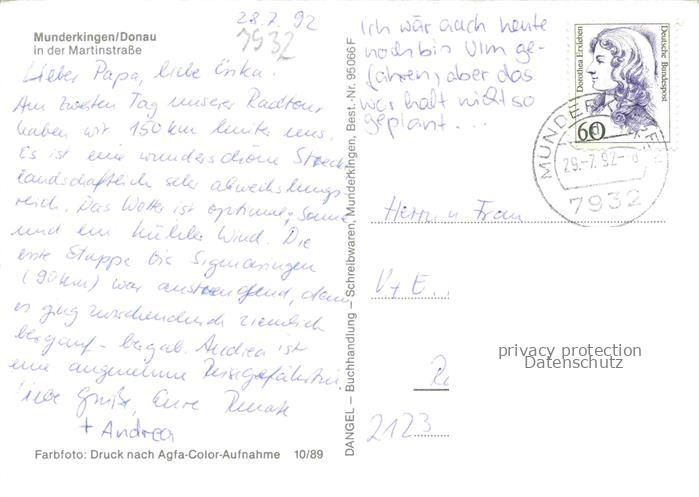 28.7.92
7932
Munderkingen/Donau
in der Martinstraße
Lieber Papa, liebe Erika.
Am zweiten Tag unserer Radtour
haben wir 150 km hinter uns.
Es ist eine wunderschöne Strecke
landschaftlich sehr abwechslungs
reich. Das Wetter ist optimal, Sonne
und ein kühler Wind. Die
erste Etappe bis Sigmaringen
(90 km) war anstrengend, denn
es ging zwischendurch ziemlich
bergauf - bergab. Andrea ist
eine angenehme Reisegefährtin.
Liebe Grüße, Eure Renate
+ Andrea
Farbfoto: Druck nach Agfa-Color-Aufnahme 10/89
DANGEL – Buchhandlung – Schreibwaren, Munderkingen, Best.-Nr. 95066 F
Ich wär auch heute
noch bis Ulm ge-
fahren, aber das
war halt nicht so
geplant...
Dorothea Erxleben
Deutsche Bundespost
60
29.-7.92
7932
Herrn u Frau
V + E. .
2123
privacy protection
Datenschutz